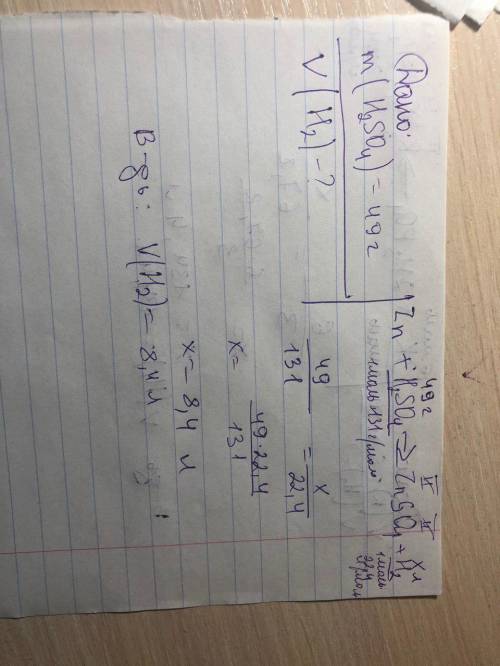 Дано:
m(H₂SO₄) = 49 г
V(H₂) - ?
49 г x л
Zn + H₂SO₄ → ZnSO₄ + H₂
II II
1моль 131 г/моль 1 моль
22,4
49/131 = x/22,4
x = 49·22,4/131
x = 8,4 л
В-дь: V(H₂) = 8,4 л